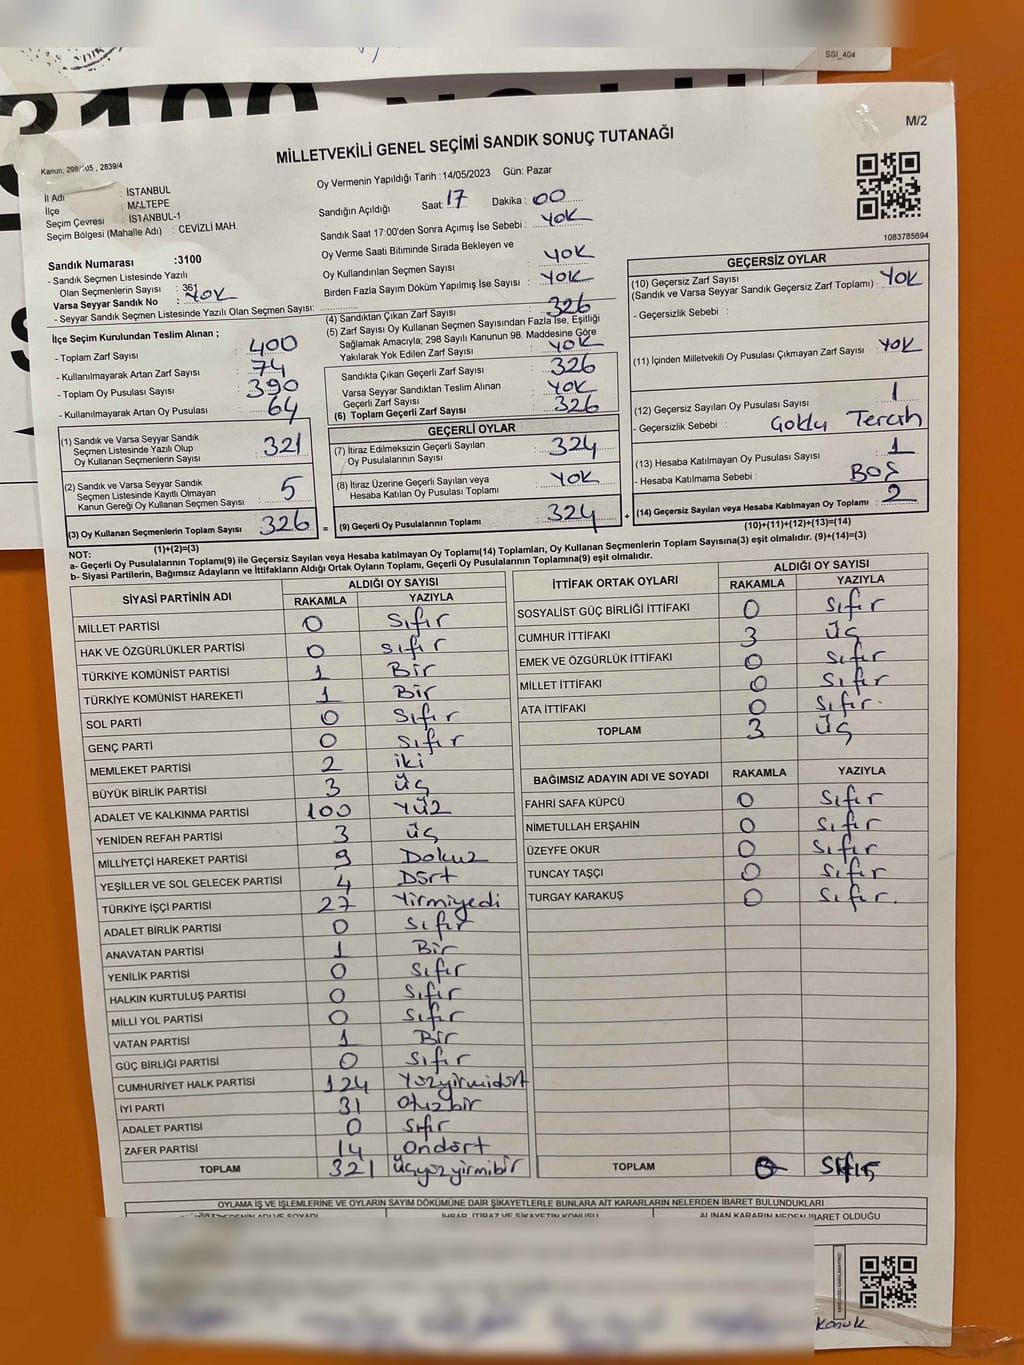 SSI_404
M/2
MİLLETVEKİLİ GENEL SEÇİMİ SANDIK SONUÇ TUTANAĞI
İl Adı : İSTANBUL
İlçe : MALTEPE
Seçim Çevresi : İSTANBUL-1
Seçim Bölgesi (Mahalle Adı) : CEVİZLİ MAH.
Oy Vermenin Yapıldığı Tarih : 14/05/2023 Gün: Pazar
Sandığın Açıldığı Saat: 17 Dakika : 00
Sandık Saat 17:00'den Sonra Açımış İse Sebebi : YOK
Oy Verme Saati Bitiminde Sırada Bekleyen ve
Oy Kullandırılan Seçmen Sayısı YOK
Birden Fazla Sayım Döküm Yapılmış İse Sayısı : YOK
1083785694
Sandık Numarası :3100
- Sandık Seçmen Listesinde Yazılı
Olan Seçmenlerin Sayısı : 361
Varsa Seyyar Sandık No : YOK
- Seyyar Sandık Seçmen Listesinde Yazılı Olan Seçmen Sayısı:
İlçe Seçim Kurulundan Teslim Alınan ;
- Toplam Zarf Sayısı : 400
- Kullanılmayarak Artan Zarf Sayısı : 74
- Toplam Oy Pusulası Sayısı : 390
- Kullanılmayarak Artan Oy Pusulası : 64
(1) Sandık ve Varsa Seyyar Sandık
Seçmen Listesinde Yazılı Olup
Oy Kullanan Seçmenlerin Sayısı : 321
(2) Sandık ve Varsa Seyyar Sandık
Seçmen Listesinde Kayıtlı Olmayan
Kanun Gereği Oy Kullanan Seçmen Sayısı : 5
(3) Oy Kullanan Seçmenlerin Toplam Sayısı : 326
(1)+(2)=(3)
(4) Sandıktan Çıkan Zarf Sayısı : 326
(5) Zarf Sayısı Oy Kullanan Seçmen Sayısından Fazla İse, Eşitliği
Sağlamak Amacıyla; 298 Sayılı Kanunun 98. Maddesine Göre
Yakılarak Yok Edilen Zarf Sayısı : YOK
Sandıkta Çıkan Geçerli Zarf Sayısı : 326
Varsa Seyyar Sandıktan Teslim Alınan
Geçerli Zarf Sayısı : YOK
(6) Toplam Geçerli Zarf Sayısı : 326
GEÇERLİ OYLAR
(7) İtiraz Edilmeksizin Geçerli Sayılan
Oy Pusulalarının Sayısı : 324
(8) İtiraz Üzerine Geçerli Sayılan veya
Hesaba Katılan Oy Pusulası Toplamı : YOK
= (9) Geçerli Oy Pusulalarının Toplamı : 324 +
GEÇERSİZ OYLAR
(10) Geçersiz Zarf Sayısı
(Sandık ve Varsa Seyyar Sandık Geçersiz Zarf Toplamı) : YOK
- Geçersizlik Sebebi :
(11) İçinden Milletvekili Oy Pusulası Çıkmayan Zarf Sayısı : YOK
(12) Geçersiz Sayılan Oy Pusulası Sayısı : 1
- Geçersizlik Sebebi : Çoklu Tercih
(13) Hesaba Katılmayan Oy Pusulası Sayısı : 1
- Hesaba Katılmama Sebebi : BOŞ
(14) Geçersiz Sayılan veya Hesaba Katılmayan Oy Toplamı : 2
(10)+(11)+(12)+(13)=(14)
NOT:
a- Geçerli Oy Pusulalarının Toplamı(9) ile Geçersiz Sayılan veya Hesaba katılmayan Oy Toplamı(14) Toplamları, Oy Kullanan Seçmenlerin Toplam Sayısına(3) eşit olmalıdır. (9)+(14)=(3)
b- Siyasi Partilerin, Bağımsız Adayların ve İttifakların Aldığı Ortak Oyların Toplamı, Geçerli Oy Pusulalarının Toplamına(9) eşit olmalıdır.
SİYASİ PARTİNİN ADI ALDIĞI OY SAYISI
RAKAMLA YAZIYLA
MİLLET PARTİSİ 0 Sıfır
HAK VE ÖZGÜRLÜKLER PARTİSİ 0 sıfır
TÜRKİYE KOMÜNİST PARTİSİ 1 Bir
TÜRKİYE KOMÜNİST HAREKETİ 1 Bir
SOL PARTİ 0 Sıfır
GENÇ PARTİ 0 sıfır
MEMLEKET PARTİSİ 2 iki
BÜYÜK BİRLİK PARTİSİ 3 üç
ADALET VE KALKINMA PARTİSİ 100 Yüz
YENİDEN REFAH PARTİSİ 3 üç
MİLLİYETÇİ HAREKET PARTİSİ 9 Dokuz
YEŞİLLER VE SOL GELECEK PARTİSİ 4 Dört
TÜRKİYE İŞÇİ PARTİSİ 27 Yirmiyedi
ADALET BİRLİK PARTİSİ 0 Sıfır
ANAVATAN PARTİSİ 1 Bir
YENİLİK PARTİSİ 0 Sıfır
HALKIN KURTULUŞ PARTİSİ 0 Sıfır
MİLLİ YOL PARTİSİ 0 Sıfır
VATAN PARTİSİ 1 Bir
GÜÇ BİRLİĞİ PARTİSİ 0 Sıfır
CUMHURİYET HALK PARTİSİ 124 Yüzyirmidört
İYİ PARTİ 31 Otuzbir
ADALET PARTİSİ 0 Sıfır
ZAFER PARTİSİ 14 Ondört
TOPLAM 321 Üçyüzyirmibir
İTTİFAK ORTAK OYLARI ALDIĞI OY SAYISI
RAKAMLA YAZIYLA
SOSYALİST GÜÇ BİRLİĞİ İTTİFAKI 0 Sıfır
CUMHUR İTTİFAKI 3 üç
EMEK VE ÖZGÜRLÜK İTTİFAKI 0 Sıfır
MİLLET İTTİFAKI 0 Sıfır
ATA İTTİFAKI 0 Sıfır.
TOPLAM 3 üç
BAĞIMSIZ ADAYIN ADI VE SOYADI RAKAMLA YAZIYLA
FAHRİ SAFA KÜPCÜ 0 Sıfır
NİMETULLAH ERŞAHİN 0 Sıfır
ÜZEYFE OKUR 0 Sıfır
TUNCAY TAŞÇI 0 Sıfır
TURGAY KARAKUŞ 0 Sıfır.
TOPLAM 0 Sıfır
OYLAMA İŞ VE İŞLEMLERİNE VE OYLARIN SAYIM DÖKÜMÜNE DAİR ŞİKAYETLERLE BUNLARA AİT KARARLARIN NELERDEN İBARET BULUNDUKLARI
İHBAR, İTİRAZ VE ŞİKAYETİN KONUSU ALINAN KARARIN NEDEN İBARET OLDUĞU
Konuk